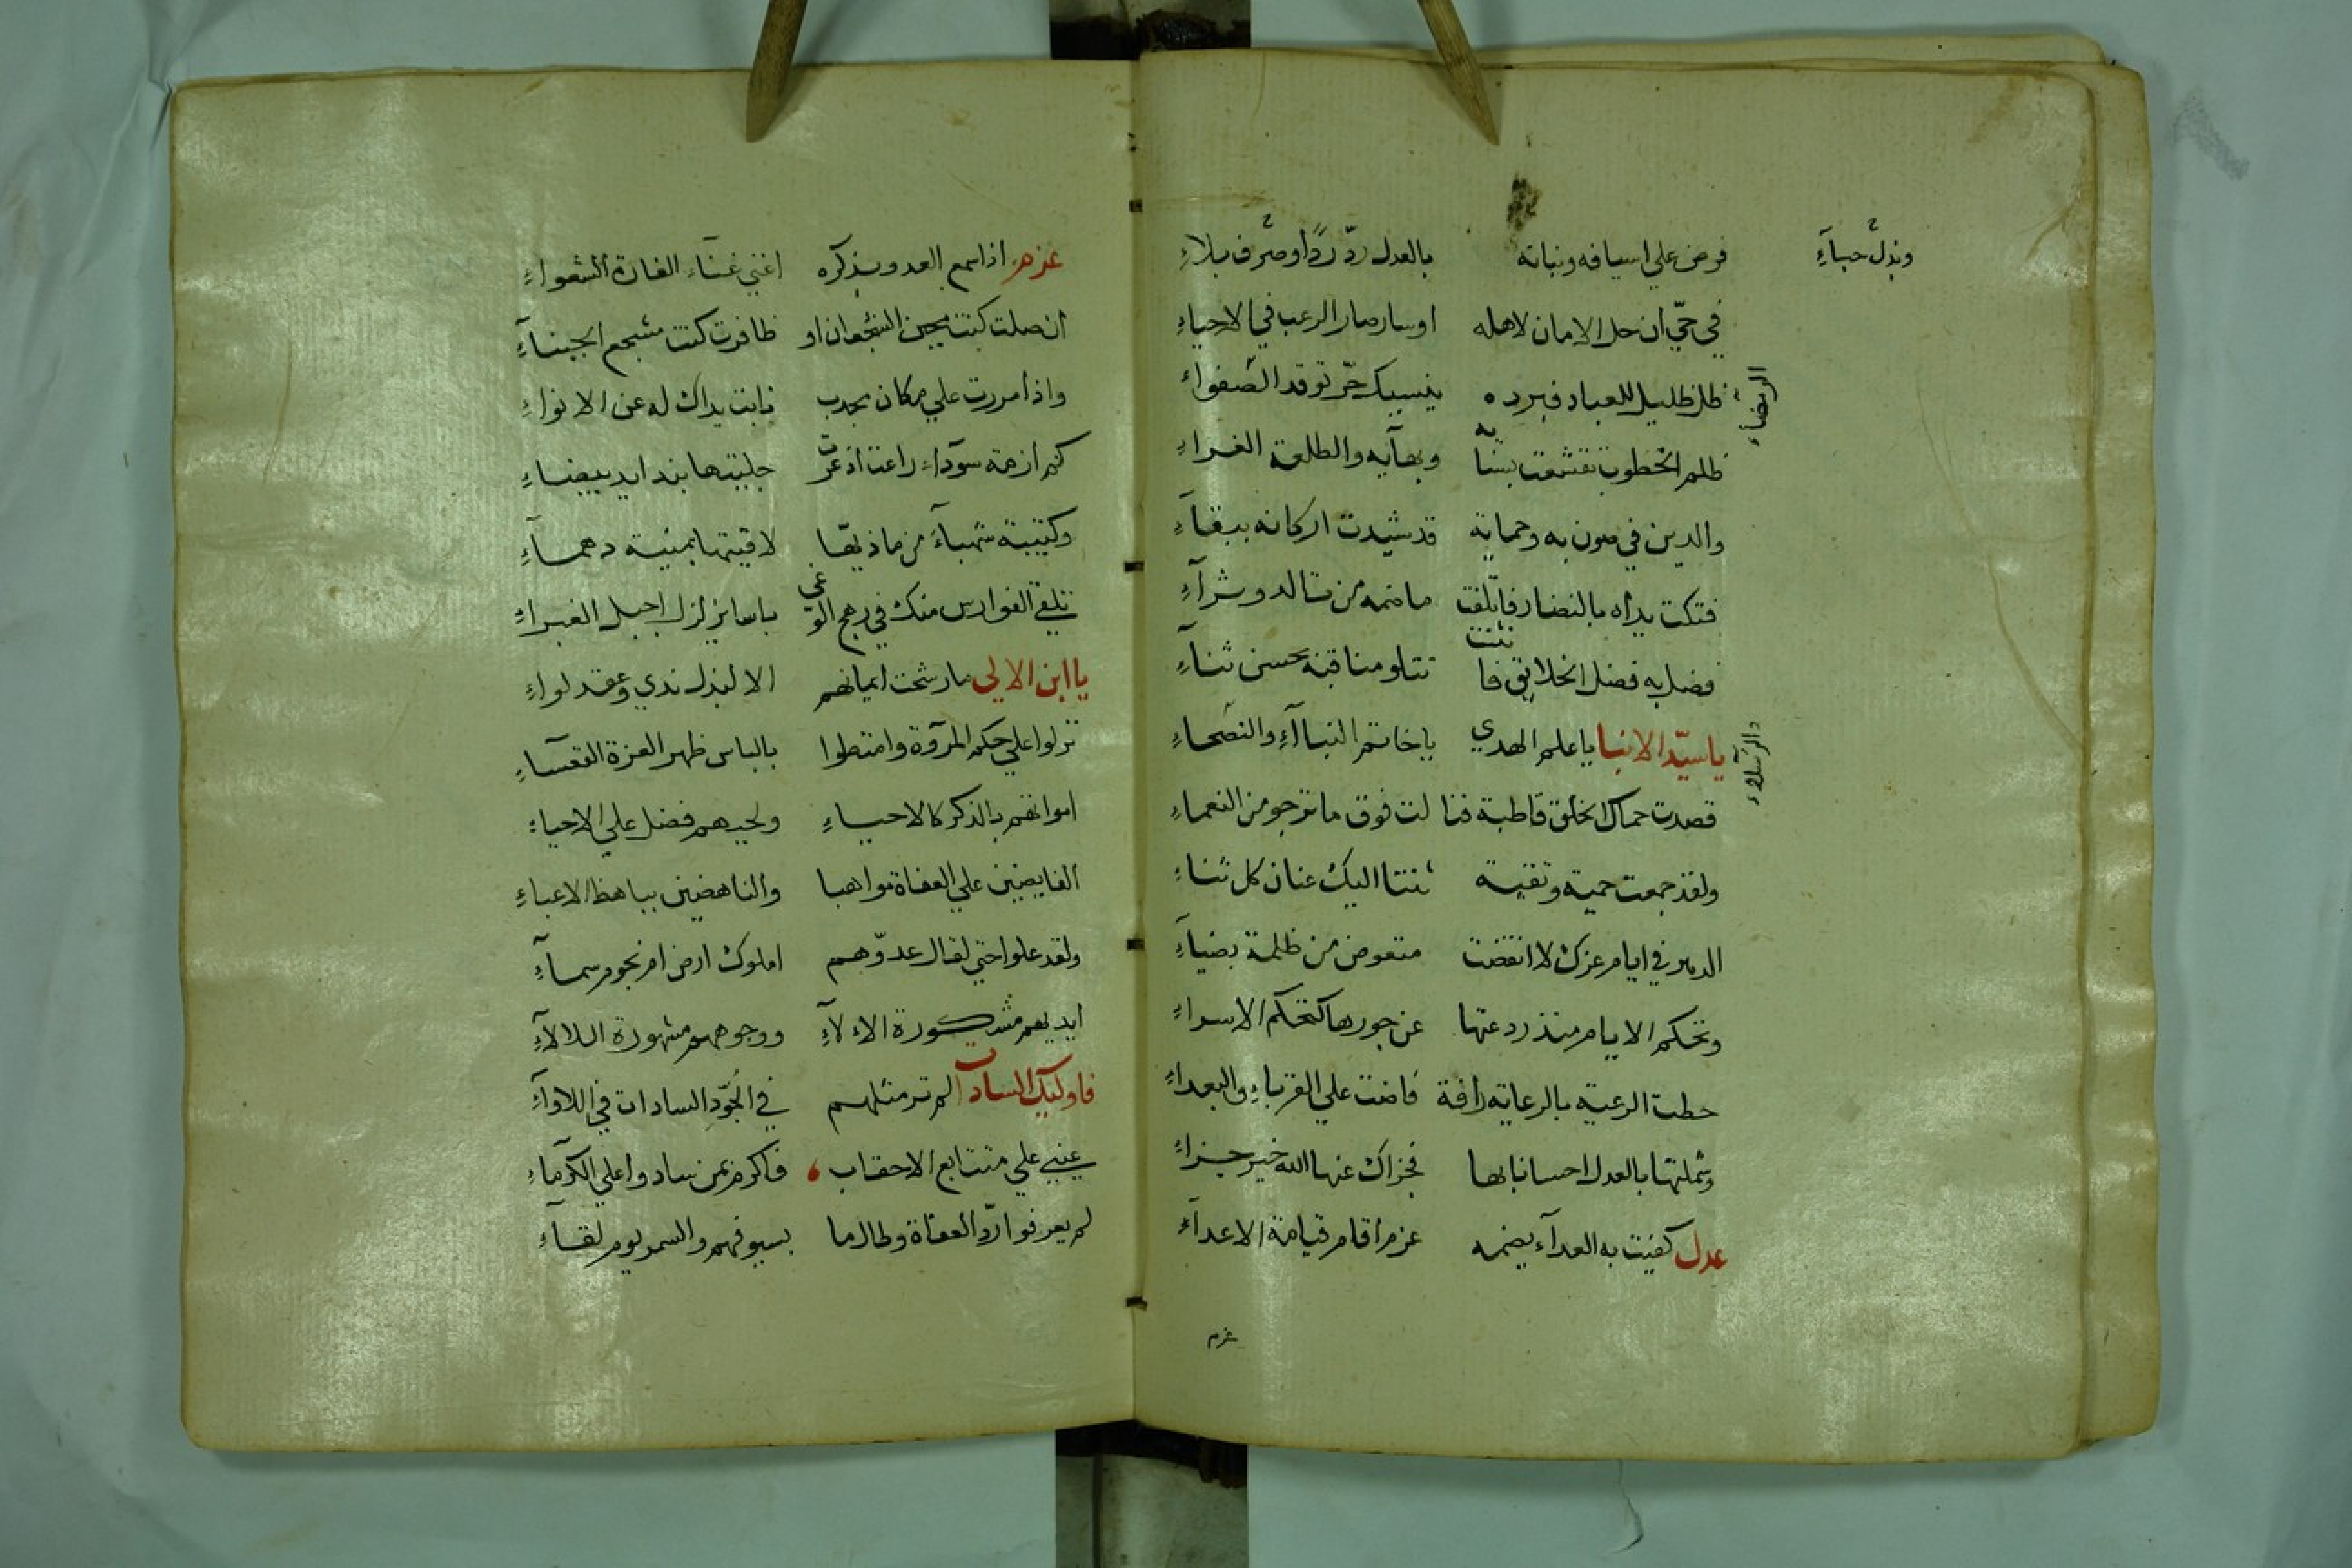 فرض علي اسيافه وبنانه بالعدل ردّ ردًا وصرف بلاءِ
وبذل حباۤءِ
في حيّ ان حل الامان لاهله او سار صار الرعب في الاحياءِ
ظل ظليل للعباد فبرده ينسيك حرّ توقد الصفواءِ
الرمضاء
ظلم الخطوب تقشعت بسنا به وبهاۤيه والطلعة الغراءِ
والدين في صون به وحماية قد شيدت اركانه ببقاۤءِ
فتكت يداه بالنضار فاتلفت ما ضمه من تالد وثراۤءِ
فضل به فضل الخلايق فانثنت تتلو مناقبه بحسن ثناۤءِ
يا سيّد الانبا يا علم الهدي يا خاتم النباۤءِ والنصحاءِ
قصدت حماك الخلق قاطبة فنا لت فوق ما ترجو من النعماءِ
ولقد جمعت حمية وتقية ثنتا اليك عنان كل ثناءِ
الدهر في ايام عزك لا انقضت متعوض من ظلمة بضياۤءِ
وتحكم الايام منذ ردعتها عن جورها كتحكم الاسراءِ
حطت الرعية بالرعاية رافة فاضت علي القرباءِ والبعداءِ
وشملتها بالعدل احسانا بها فجزاك عنها الله خير جزاءِ
عدل كفيت به العداۤء يضمه عزم اقام قيامة الاعداۤءِ
عزم
عزم اذا سمع العدو بذكره اغني غناۤء الغارة الشعواءِ
ان صلت كنت مجبن الشجعان او ظافرت كنت مشجع الجبناۤءِ
واذا مررت علي مكان مجدب نابت يداك له عن الانواءِ
كم ازمة سوداۤء راعت اذ عرت جليتها بندا يد بيضاءِ
وكتيبة شهباۤء من ماذيها لاقيتها بمنية دهماۤءِ
تلقي الفوارس منك في رهج الوغي باسا يزلزل اجبل الغبراءِ
يا ابن الالي ما رشحت ايمانهم الا لبذل ندي وعقد لواءِ
نزلوا علي حكم المروّة وامتطوا بالباس ظهر العزة القعساۤءِ
امواتهم بالذكر كالاحياءِ ولحيهم فضل علي الاحياءِ
الفايضين علي العفاة مواهبا والناهضين بباهظ الاعباءِ
ولقد علوا حتي لقال عدوّهم املوك ارض ام نجوم سماۤءِ
ايديهم مشكورة الالاۤءِ ووجوههم مشهورة اللالاۤءِ
فاوليك السادات لم تر مثلهم في الجُوّدِ السادات في اللاواۤءِ
عيني علي متتابع الاحقاب فاكرم بمن سادوا علي الكرماۤءِ
لم يعرفوا ردّ العفاة وطالما بسيوفهم والسمر يوم لقاۤءِ